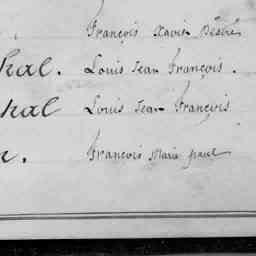 François Xavier Désiré
hal. Louis Jean François.
hal Louis Jean François
François Marie paul